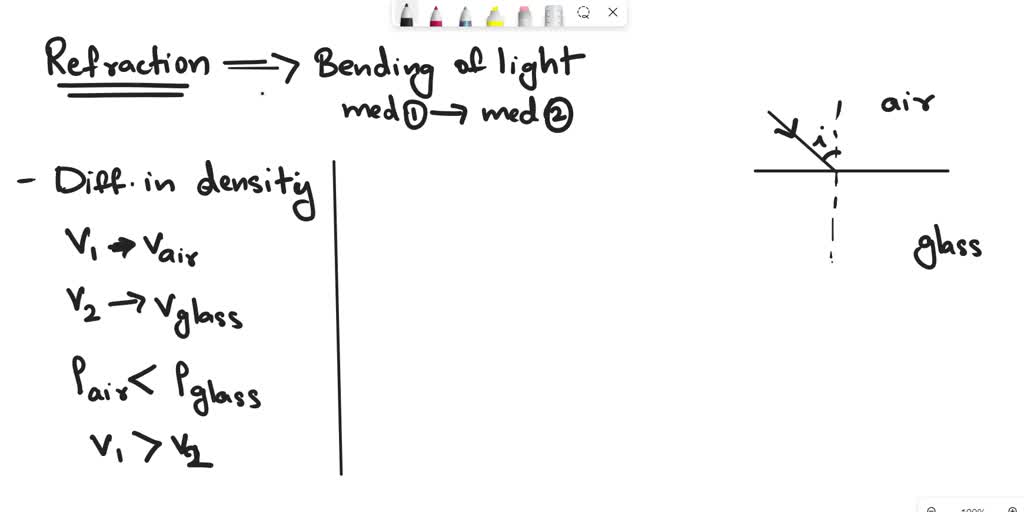 Refraction ⟹ Bending of light
med ① → med ②
- Diff. in density
V₁ → Vair
V₂ → Vglass
ρair < ρglass
V₁ > V₂
air
i
glass
100%